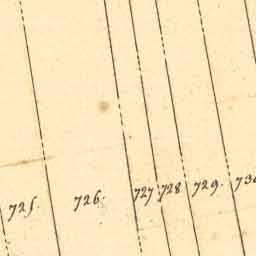 725. 726. 727. 728 729.